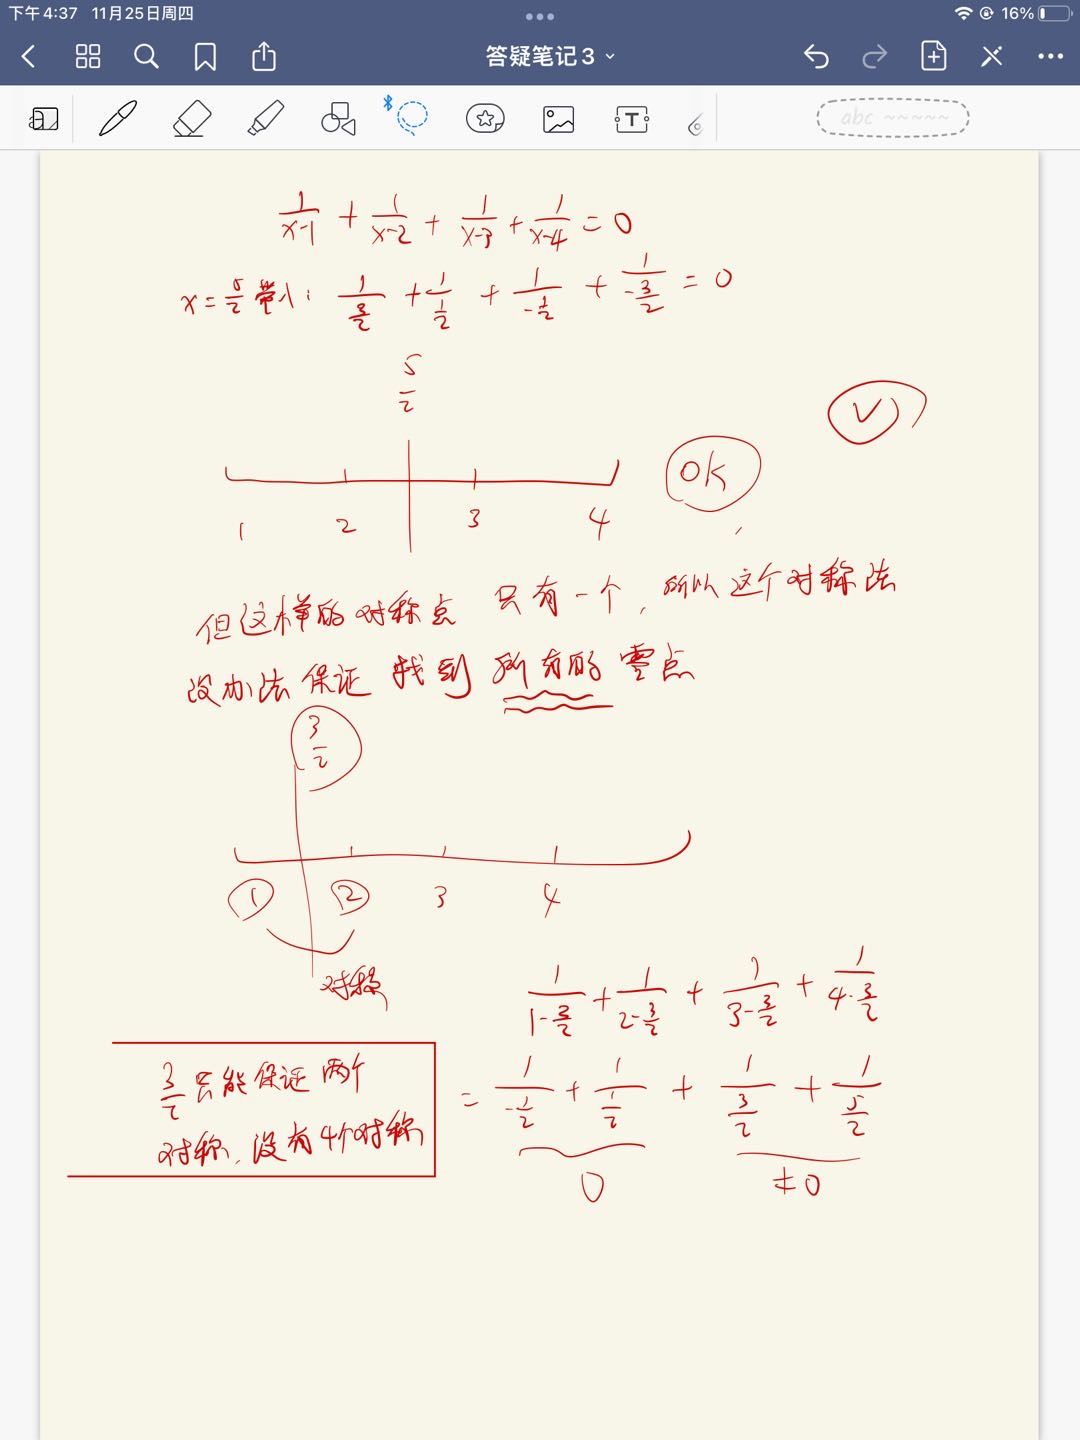 下午4:37 11月25日周四
16%
答疑笔记3
abc
1/(x-1) + 1/(x-2) + 1/(x-3) + 1/(x-4) = 0
x = 5/2 带入: 1/(3/2) + 1/(1/2) + 1/(-1/2) + 1/(-3/2) = 0
5/2
OK
1 2 3 4
但这样的对称点 只有一个, 所以这个对称法
没办法保证 找到 所有的 零点
3/2
1 2 3 4
对称
1/(1-3/2) + 1/(2-3/2) + 1/(3-3/2) + 1/(4-3/2)
= 1/(-1/2) + 1/(1/2) + 1/(3/2) + 1/(5/2)
0 ≠0
3/2 只能保证两个
对称, 没有4个对称